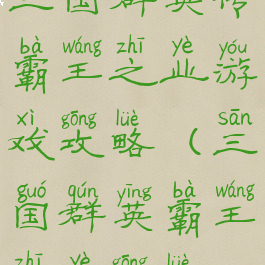 三国群英传
bà wáng zhī yè yóu
霸王之业游
xì gōng lüè sān
戏攻略（三
guó qún yīng bà wáng
国群英霸王
zhī yè gōng lüè